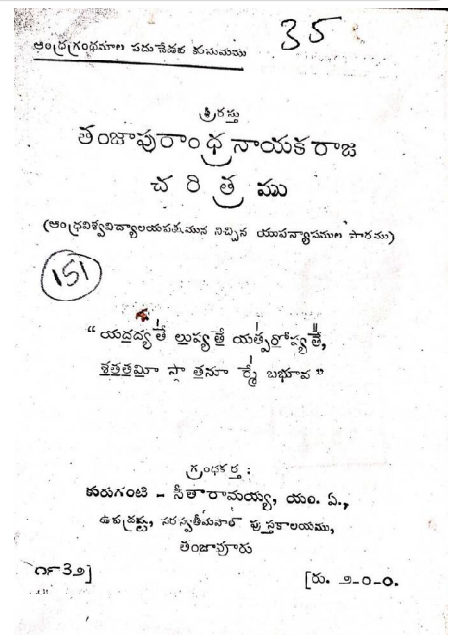 35
ఆంధ్రగ్రంథమాల పదునేడవ కుసుమము
శ్రీరస్తు
తంజాపురాంధ్రనాయకరాజ
చరిత్రము
(ఆంధ్రవిశ్వవిద్యాలయపక్షమున నిచ్చిన యుపన్యాసముల సారము)
151
“ యద్రద్యతే లుప్యతే యత్పరోప్యతే,
శత్తతమీ స్తా తనూ ర్మే బభూవ ”
గ్రంథకర్త :
కురుగంటి - సీతారామయ్య, యం. ఏ.,
సరస్వతీమహల్ పుస్తకాలయము,
తంజావూరు
౧౯౩౨]
[రు. ౨-౦-౦.